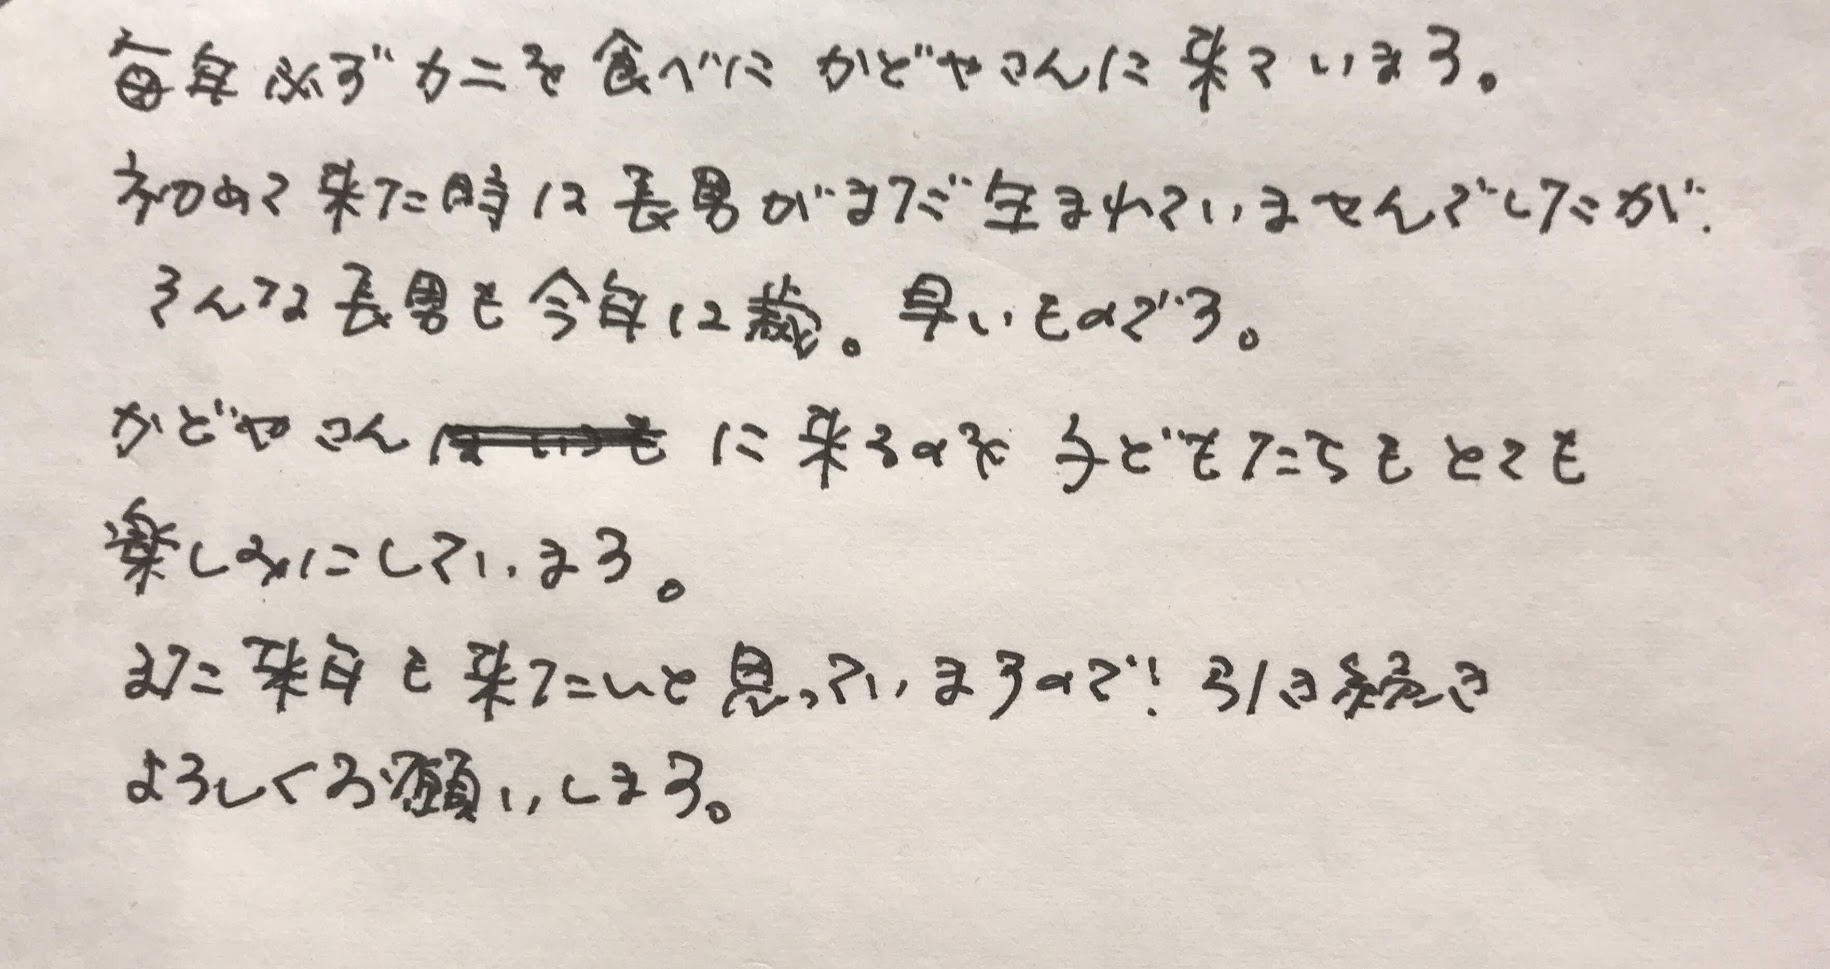 毎年必ずカニを食べにかどやさんに来ています。
初めて来た時は長男がまだ生まれていませんでしたが、
そんな長男も今年12歳。早いものです。
かどやさんに来るのを子どもたちもとても
楽しみにしています。
また来年も来たいと思っていますので！引き続き
よろしくお願いします。